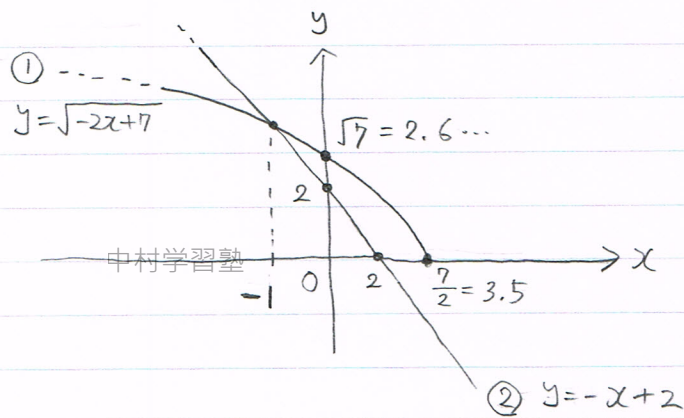 y
①
y=√-2x+7
√7 = 2.6…
2
中村学習塾
0
2
x
-1
7/2 = 3.5
② y=-x+2